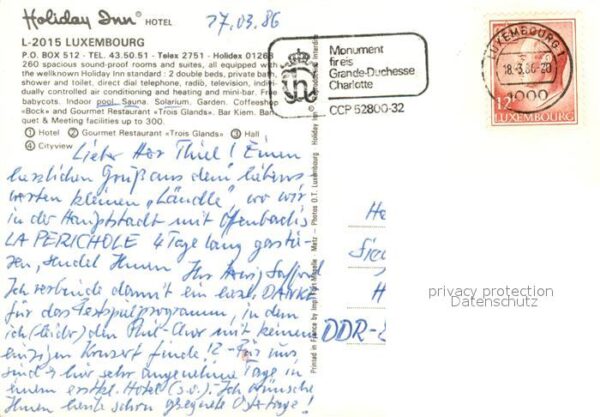 Holiday Inn® HOTEL
17.03.86
L-2015 LUXEMBOURG
P.O. BOX 512 - TEL. 43.50.51 - Telex 2751 - Holidex 01263
260 spacious sound-proof rooms and suites, all equipped with
the wellknown Holiday Inn standard: 2 double beds, private bath,
shower and toilet, direct dial telephone, radio, television, indivi-
dually controlled air conditioning and heating and mini-bar. Free
babycots. Indoor pool, Sauna. Solarium. Garden. Coffeeshop
«Bock» and Gourmet Restaurant «Trois Glands». Bar Kiem. Ban-
quet & Meeting facilities up to 300.
① Hotel ② Gourmet Restaurant «Trois Glands» ③ Hall
④ Cityview
Monument
fir eis
Grande-Duchesse
Charlotte
CCP 52800-32
LUXEMBOURG 1
18.-3.86-20
1000
12F
LUXEMBOURG
Lieber Herr Thiel! Einen
herzlichen Gruß aus dem liebens
werten kleinen „Ländle", wo wir
in der Hauptstadt mit Offenbachs
LA PERICHOLE 4 Tage lang gastie-
ren, sendet Ihnen Ihr
Ich verbinde damit ein herzl. DANKE
für das Festspielprogramm, in dem
ich (leider) den Phil-Chor mit keinem
einzigen Konzert finde!? - Für uns
sind es hier sehr angenehme Tage in
einem erstkl. Hotel (s.o.). Ich wünsche
Ihnen heute schon gesegnete Ostertage!
Printed in France by Imp. Fort Moselle Metz - Photos O.T. Luxembourg Holiday Inn
He
H
DDR-
privacy protection
Datenschutz